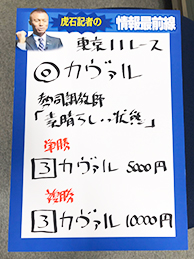 虎石記者の
情報最前線
東京11レース
◎カヴァル
勢司調教師
「素晴らしい状態」
単勝
3 カヴァル 5000円
複勝
3 カヴァル 10000円